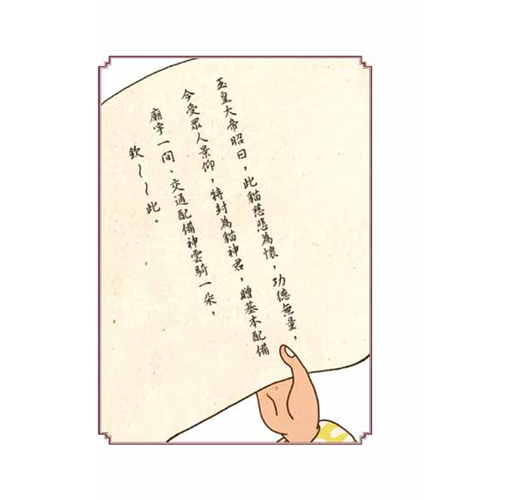 玉皇大帝昭曰，此貓慈悲為懷，功德無量，
今受眾人景仰，特封為貓神君，贈基本配備
廟宇一間、交通配備神雲騎一朵，
欽～～此。